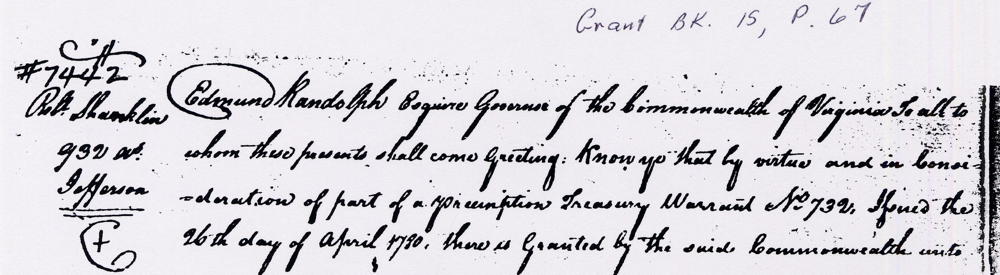 Grant BK. 15, P. 67
#7442
Robt. Shanklin
932 as.
Jefferson
Edmund Randolph Esquire Governor of the Commonwealth of Virginia To all to
whom these presents shall come Greeting: Know ye that by virtue and in Consi-
-deration of part of a preemption Treasury Warrant No. 732, Issued the
26th day of April 1780. there is Granted by the said Commonwealth unto